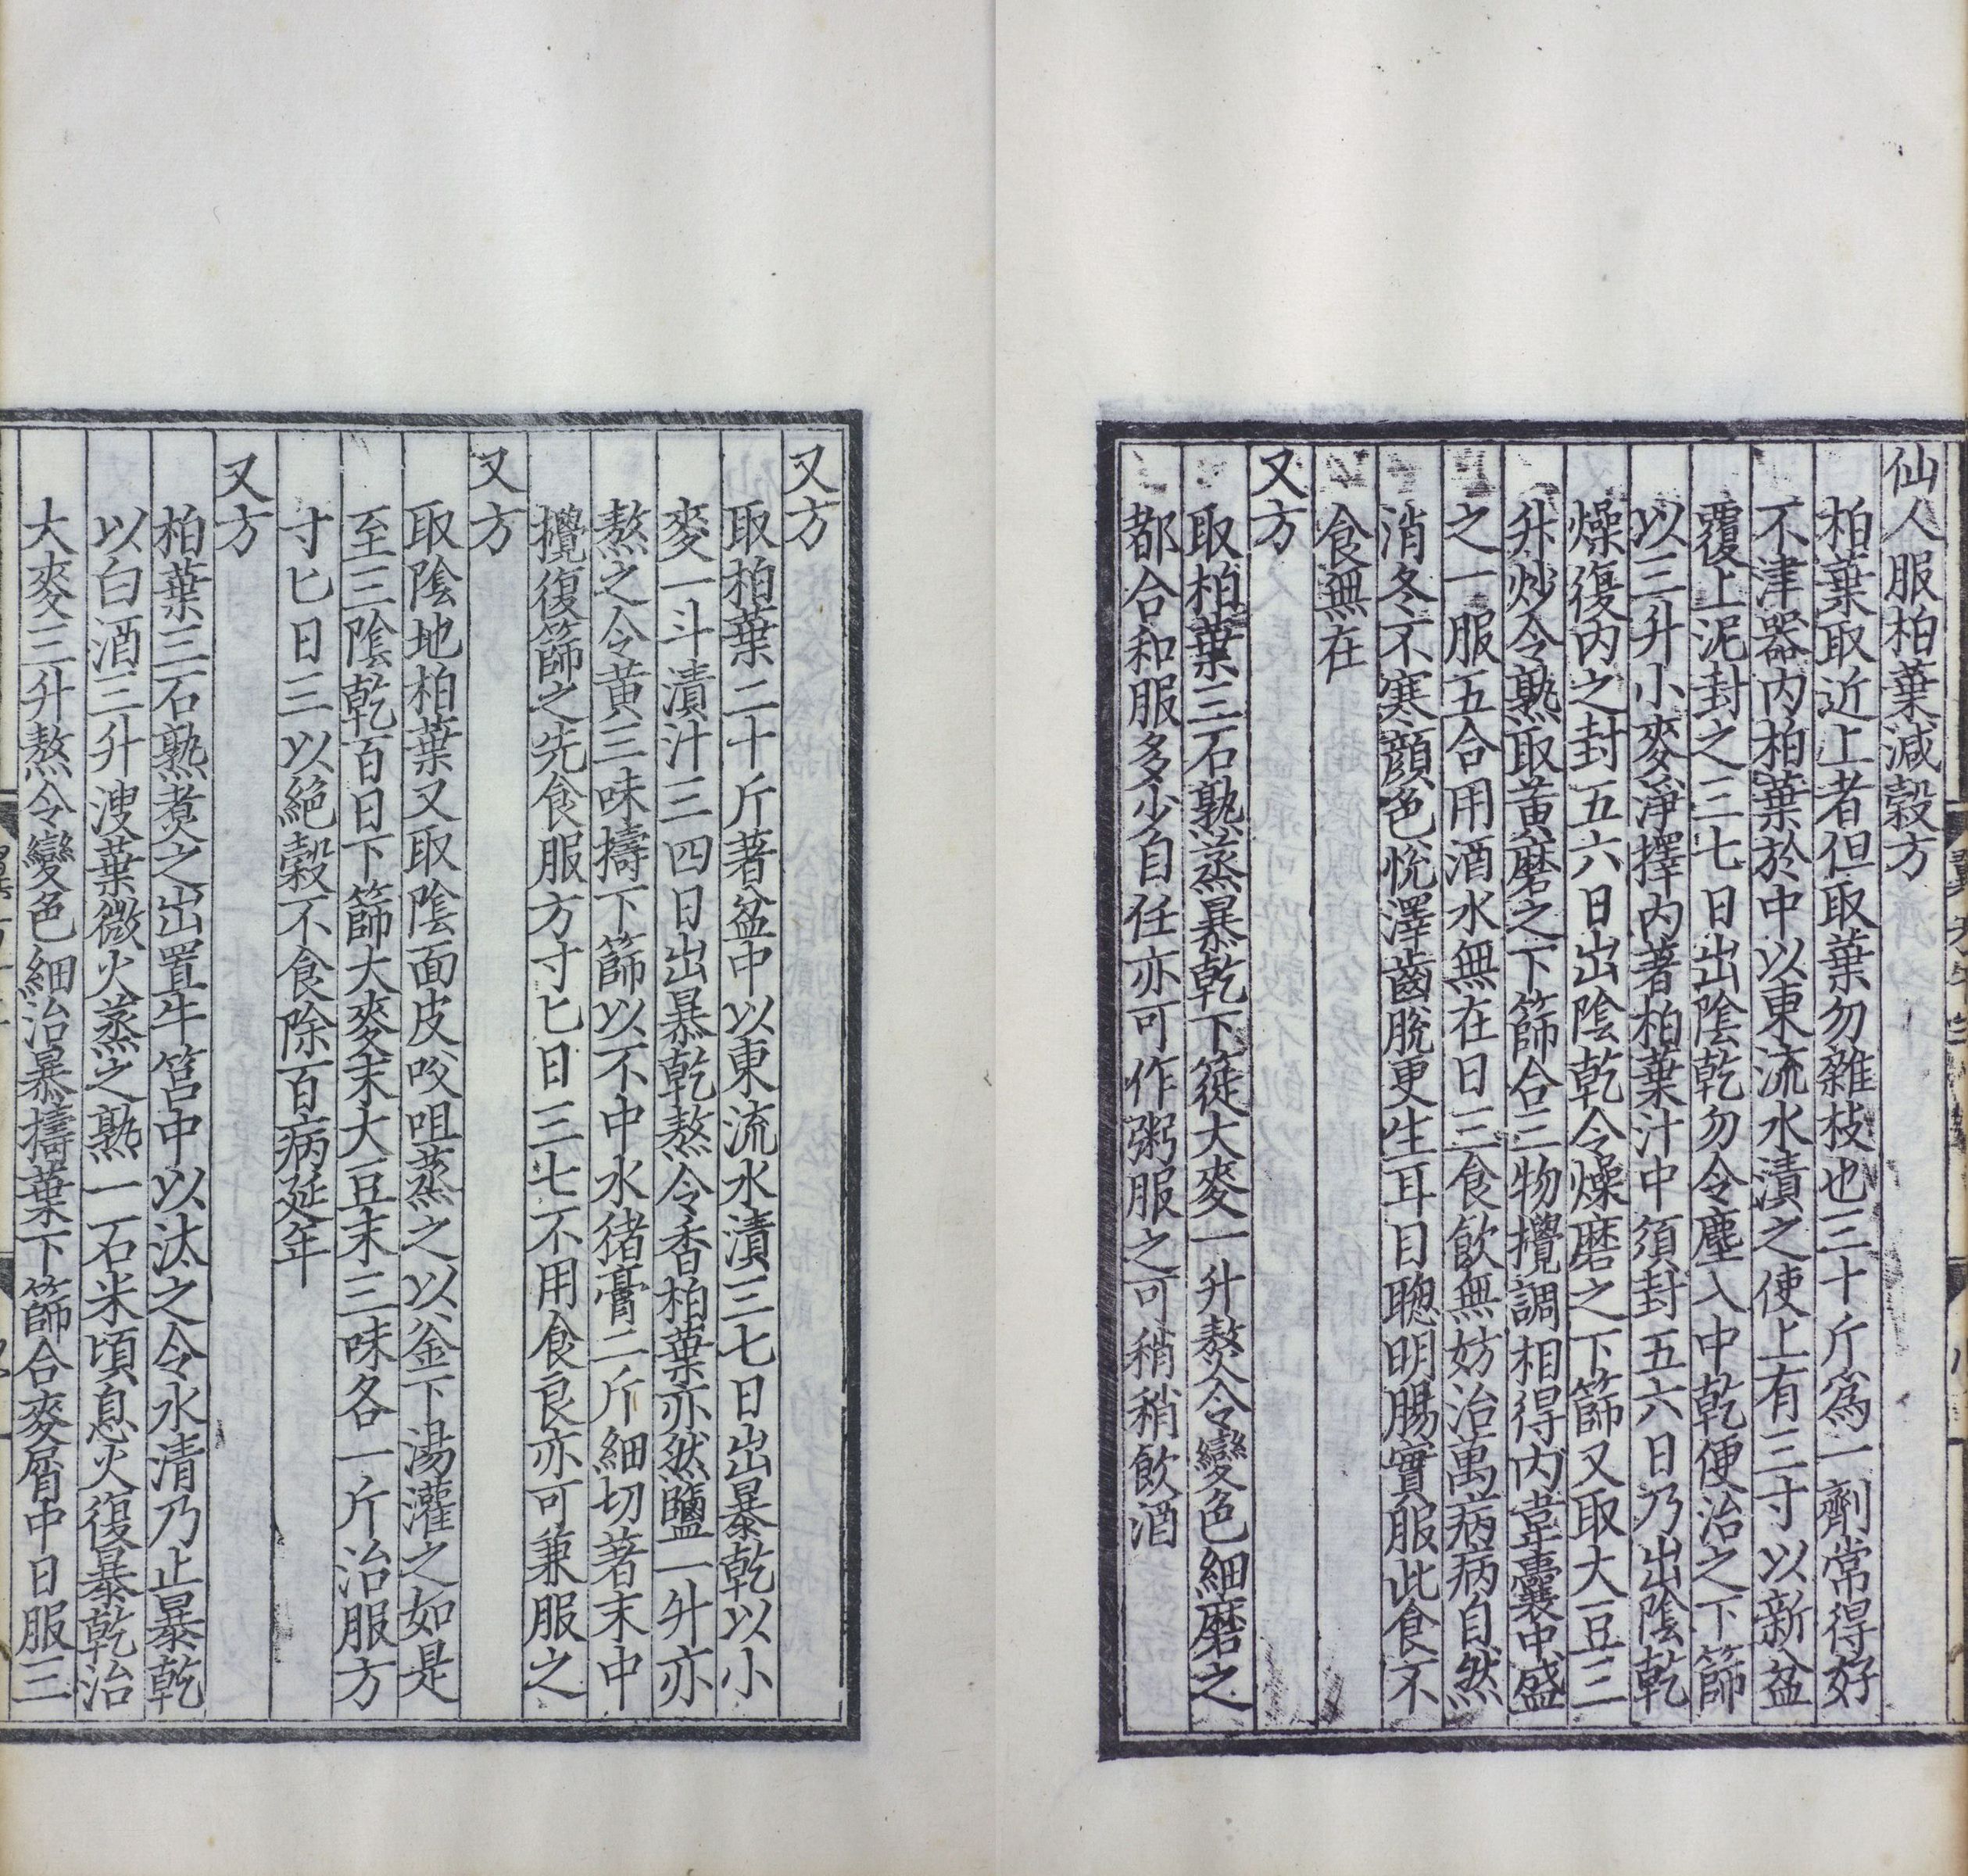 仙人服柏葉減穀方
柏葉取近上者但取葉勿雜枝也三十斤爲一劑常得好
不津器內柏葉於中以東流水漬之使上有三寸以新盆
覆上泥封之三七日出陰乾勿令塵入中乾便治之下篩
以三升小麥淨擇內著柏葉汁中須封五六日乃出陰乾
燥復內之封五六日出陰乾令燥磨之下篩又取大豆三
升炒令熟取黃磨之下篩合三物攪調相得內韋囊中盛
之一服五合用酒水無在日三食飲無妨治萬病病自然
消冬不寒顏色悅澤齒脫更生耳目聰明腸實服此食不
食無在
又方
取柏葉三石熟蒸暴乾下簁大麥一升熬令變色細磨之
都合和服多少自任亦可作粥服之可稍稍飲酒
又方
取柏葉二十斤著盆中以東流水漬三七日出暴乾以小
麥一斗漬汁三四日出暴乾熬令香柏葉亦然鹽一升亦
熬之令黃三味擣下篩以不中水猪膏二斤細切著末中
攪復篩之先食服方寸匕日三七不用食良亦可兼服之
又方
取陰地柏葉又取陰面皮㕮咀蒸之以釜下湯灌之如是
至三陰乾百日下篩大麥末大豆末三味各一斤治服方
寸匕日三以絕穀不食除百病延年
又方
柏葉三石熟煑之出置牛筥中以汰之令水清乃止暴乾
以白酒三升溲葉微火蒸之熟一石米頃息火復暴乾治
大麥三升熬令變色細治暴擣葉下篩合麥屑中日服三